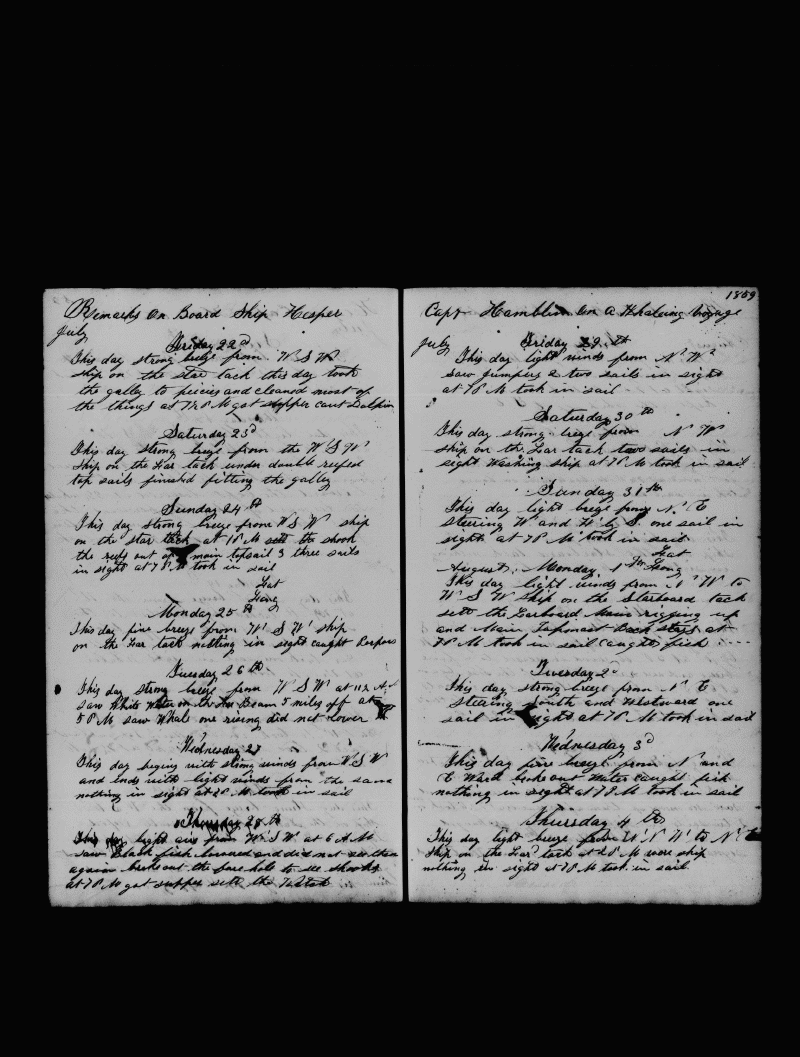 Remarks On Board Ship Hesper
July
Friday 22d
This day strong breeze from W S W
ship on the star tack this day took
the galley to pieces and cleaned most of
the things at 7 P M got supper caut Dolphin
Saturday 23d
This day strong breeze from the W S W
ship on the Lar tack under double reefed
top sails finished fitting the galley
Sunday 24th
This day strong breeze from W S W ship
on the star tack at 1 P M the shook
the reefs out of main topsail 3 three sails
in sight at 7 P M took in sail
Lat
Long
Monday 25th
This day fine breeze from W S W ship
on the Lar tack nothing in sight caught
Tuesday 26th
This day strong breeze from W S W at 11 A
saw White Water on the Beam 5 miles off at
5 P M saw Whale one rising did not lower
Wednesday 27
This day begins with strong winds from W S W
and ends with light winds from the same
nothing in sight at P M took in sail
Thursday 28th
This day light airs from W S W at 6 A M
saw Black fish lowered and did not see them
again broke out the fore hole to see shooks
at 7 P M got supper sett the
1859
Capt Hamblin On A Whaleing Voyage
July Friday 29th
This day light winds from N W
saw jumpers & two sails in sight
at P M took in sail
Saturday 30th
This day strong breeze from N W
ship on the Lar tack two sails in
sight Washing ship at 7 P M took in sail
Sunday 31th
This day light breeze from N E
steering W and W by S one sail in
sight at 7 P M took in sail
Lat
August Monday 1th Long
This day light winds from N W to
W S W ship on the Starboard tack
sett the Larboard Main rigging up
and Main Back stays at
7 P M took in sail caught fish
Tuesday 2d
This day strong breeze from N E
steering South and Westward one
sail in sight at 7 P M took in sail
Wednesday 3d
This day fine breeze from N and
E Ward broke out Water caught fish
nothing in sight at 7 P M took in sail
Thursday 4th
This day light breeze from W N W to N
Ship on the Lar tack at 2 P M wore ship
nothing in sight at 7 P M took in sail